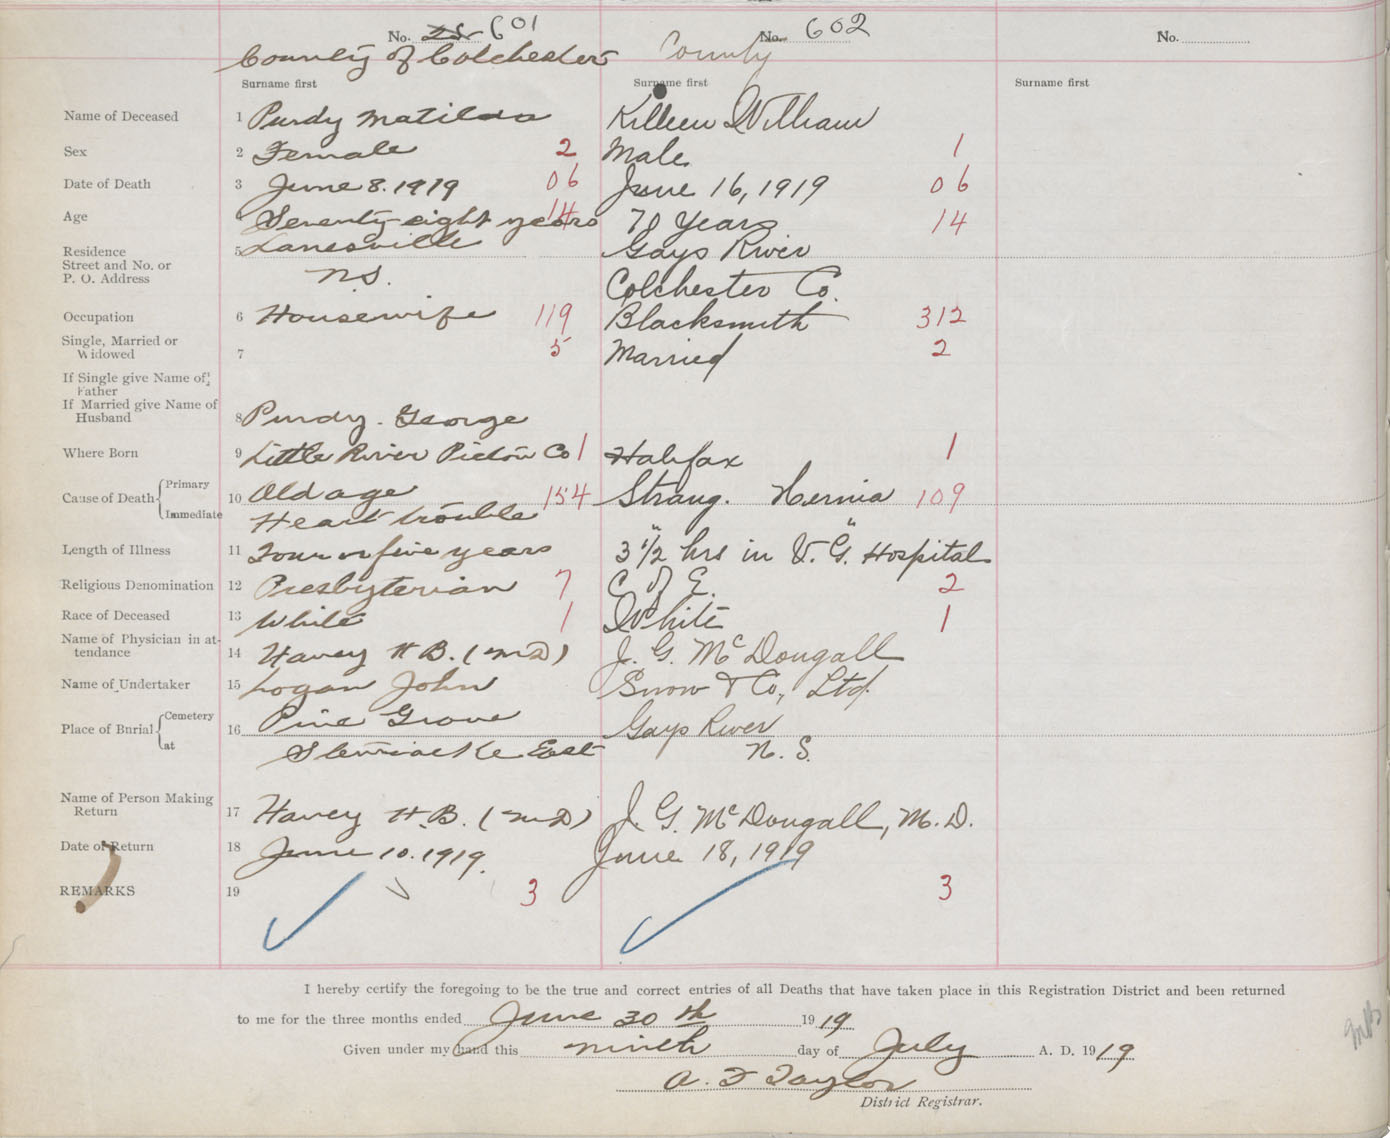 No. 601
No. 602
No.
County of Colchester
County
Surname first
Surname first
Surname first
Name of Deceased 1 Purdy Matilda Killeen William
Sex 2 Female 2 Male 1
Date of Death 3 June 8. 1919 06 June 16, 1919 06
Age Seventy-eight years 14 70 Years 14
Residence 5 Lanesville Gays River
Street and No. or
P. O. Address N.S. Colchester Co.
Occupation 6 Housewife 119 Blacksmith 312
Single, Married or
Widowed 7 5 Married 2
If Single give Name of
Father
If Married give Name of
Husband 8 Purdy. George
Where Born 9 Little River Pictou Co 1 Halifax 1
Cause of Death Primary 10 Old age 154 Strang. Hernia 109
Immediate Heart trouble
Length of Illness 11 Four or five years 3 1/2 hrs in V. G. Hospital
Religious Denomination 12 Presbyterian 7 C of E. 2
Race of Deceased 13 White 1 White 1
Name of Physician in at-
tendance 14 Havey H B. (MD) J. G. McDougall
Name of Undertaker 15 Logan John Snow & Co, Ltd.
Place of Burial Cemetery 16 Pine Grove Gays River
at Stewiacke East N. S.
Name of Person Making
Return 17 Havey H. B. (MD) J. G. McDougall, M. D.
Date of Return 18 June 10. 1919. June 18, 1919
REMARKS 19 3 3
I hereby certify the foregoing to be the true and correct entries of all Deaths that have taken place in this Registration District and been returned
to me for the three months ended June 30 th 1919
Given under my hand this ninth day of July A. D. 1919
A. F Taylor
District Registrar.